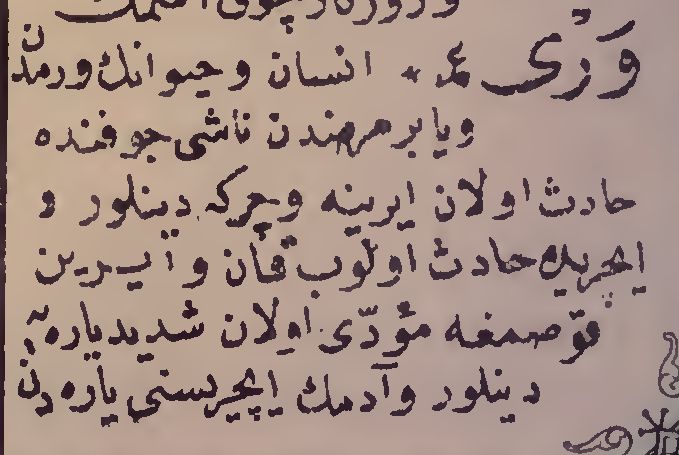 وری ع * انسان و حیوانك ورمدن
ویا بر مرضدن ناشی جوفنده
حادث اولان ایرینه و چرکه دینلور و
ایچریده حادث اولوب قان و ایرین
قوصمغه مؤدّی اولان شدید یاره یه
دینلور و آدمك ایچریسنی یاره دن